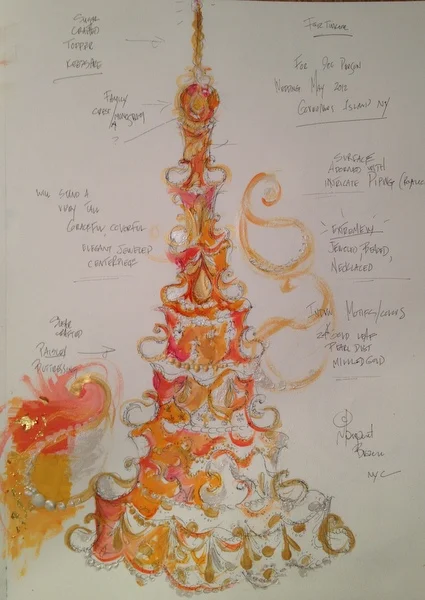 Sugar
Crafted
Topper
Keepsake
Family
Crest/Monogram
?
Will Stand a
Very Tall
Graceful, Colorful
Elegant Jeweled
Centerpiece
Sugar
Crafted
Paisley
For
Wedding May 2012
Governors Island NY
Surface
Adorned with
Intricate Piping
Extremely
Jeweled, Beaded,
Necklaced
Indian Motifs/Colors
24K Gold Leaf
Pearl Dust
Milled Gold
Margaret
Braun
NYC